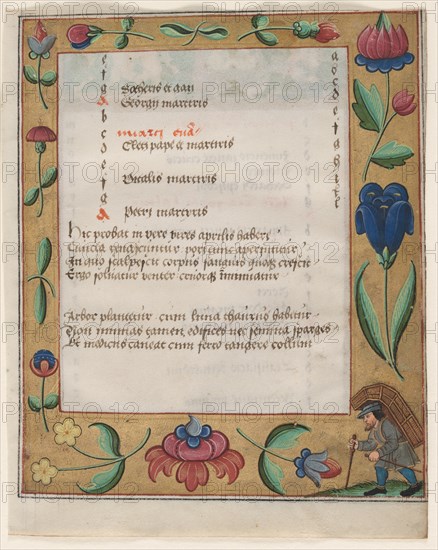 e
f
g
A
b
c
d
e
f
g
A
a b c d e f g h i k
Georgij martiris
marci eua
Cleti pape et martiris
Vitalis martiris
Petri martiris
Hic probat in vere vires aprilis habere
Cuncta renascuntur pori tunc aperiuntur
In quo scalpescit corpus sanguis quoque crescit
Ergo soluatur venter cruorque minuatur
Arbor plantatur cum luna thaurus habetur
Non minuas tamen edifices nec semina sparges
Et medicus caueat cum ferro tangere collum